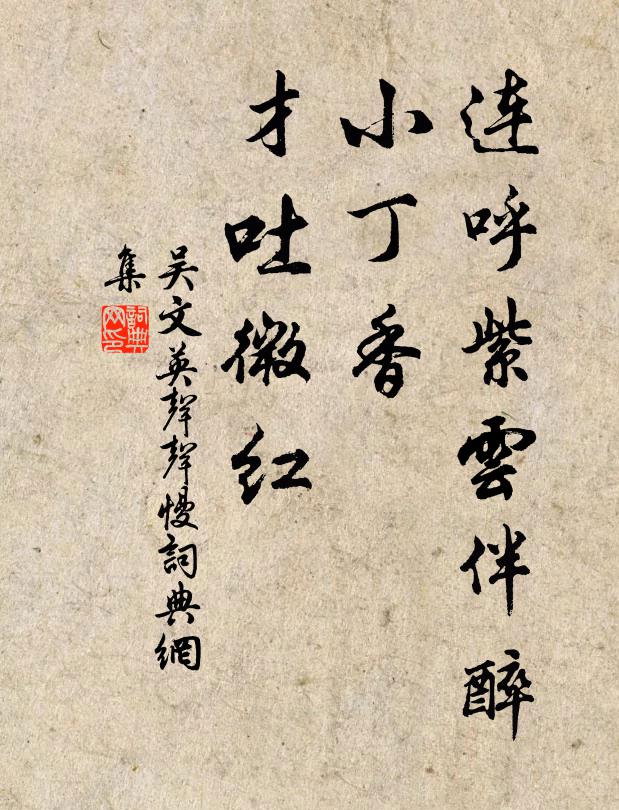 连呼紫雲伴醉
小丁香
才吐微红
吴文英聲聲慢詞典網
集
詞典网印